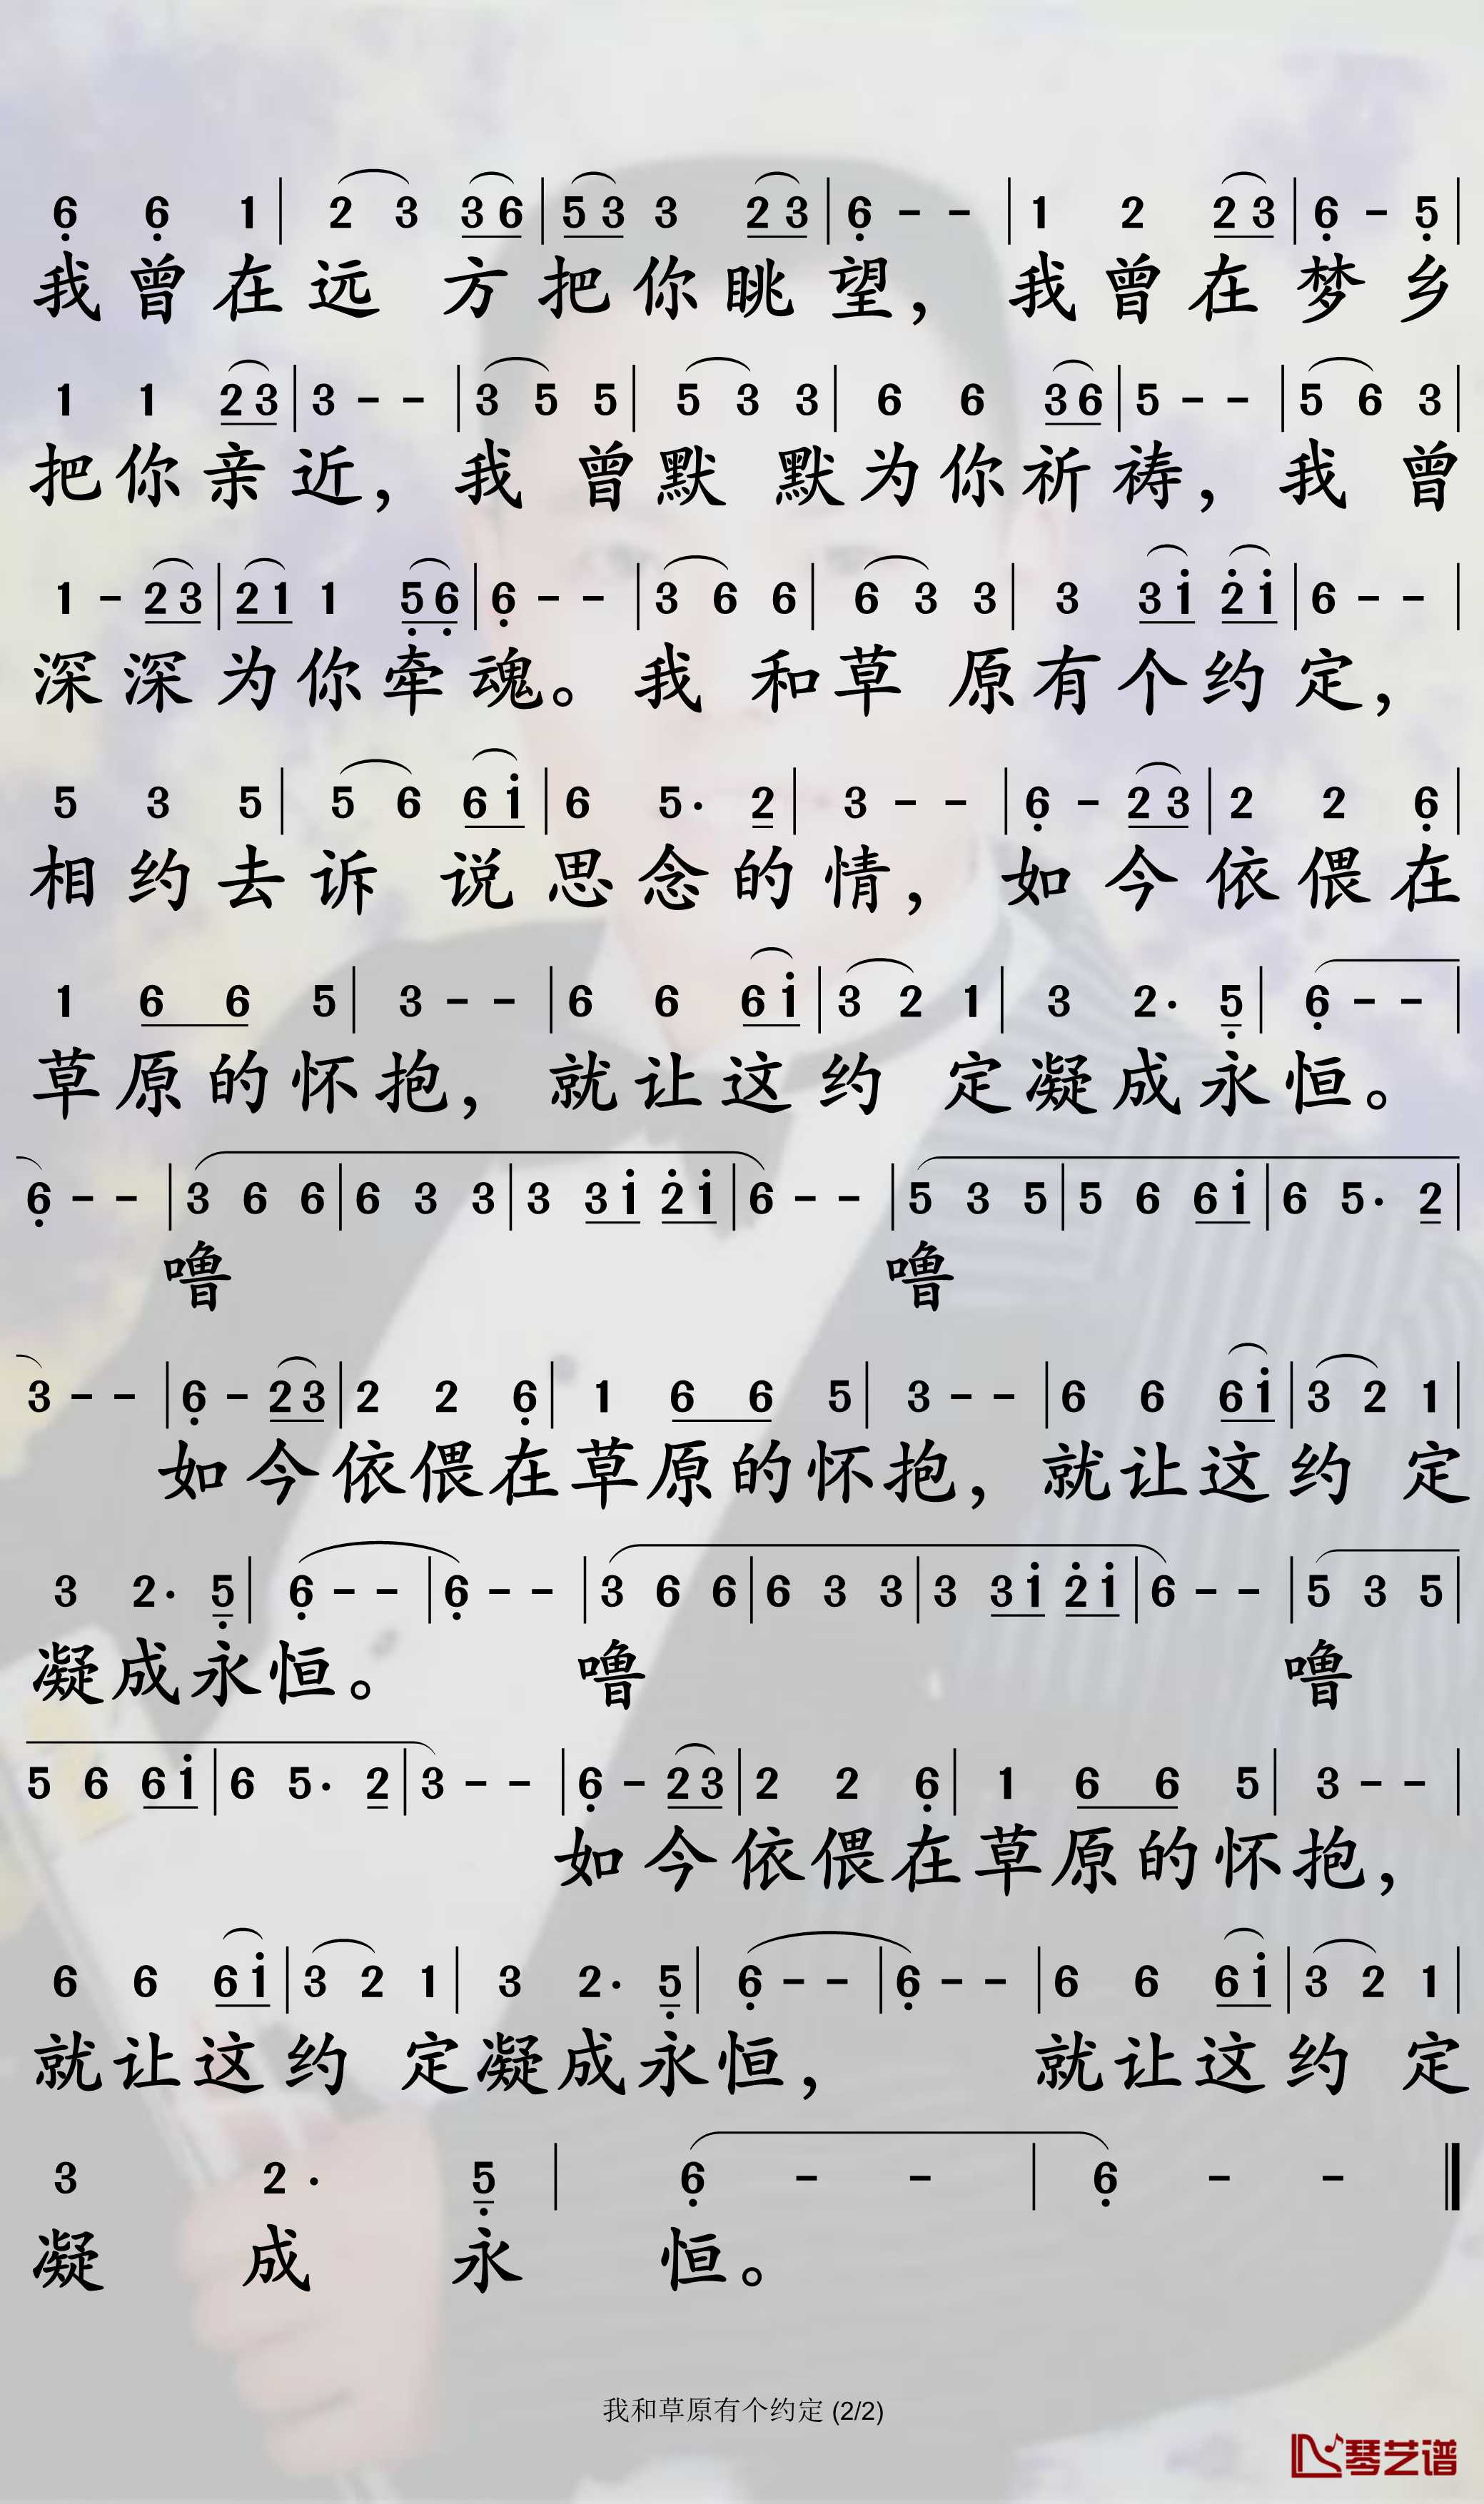 6̣ 6̣ 1 | 2 3 3 6 | 5 3 3 2 3 | 6̣ - - | 1 2 2 3 | 6̣ - 5̣ |
我曾在远 方把你眺望， 我曾在梦乡
1 1 2 3 | 3 - - | 3 5 5 | 5 3 3 | 6 6 3 6 | 5 - - | 5 6 3 |
把你亲近， 我 曾默 默为你祈祷， 我 曾
1 - 2 3 | 2 1 1 5̣ 6̣ | 6̣ - - | 3 6 6 | 6 3 3 | 3 3 1̇ 2̇ 1̇ | 6 - - |
深深为你牵魂。 我 和草 原有个约定，
5 3 5 | 5 6 6 1̇ | 6 5· 2 | 3 - - | 6̣ - 2 3 | 2 2 6̣ |
相约去诉 说思念的情， 如今依偎在
1 6 6 5 | 3 - - | 6 6 6 1̇ | 3 2 1 | 3 2· 5̣ | 6̣ - - |
草原的怀抱， 就让这约 定凝成永恒。
6̣ - - | 3 6 6 | 6 3 3 | 3 3 1̇ 2̇ 1̇ | 6 - - | 5 3 5 | 5 6 6 1̇ | 6 5· 2 |
噜 噜
3 - - | 6̣ - 2 3 | 2 2 6̣ | 1 6 6 5 | 3 - - | 6 6 6 1̇ | 3 2 1 |
如今依偎在草原的怀抱， 就让这约 定
3 2· 5̣ | 6̣ - - | 6̣ - - | 3 6 6 | 6 3 3 | 3 3 1̇ 2̇ 1̇ | 6 - - | 5 3 5 |
凝成永恒。 噜 噜
5 6 6 1̇ | 6 5· 2 | 3 - - | 6̣ - 2 3 | 2 2 6̣ | 1 6 6 5 | 3 - - |
如今依偎在草原的怀抱，
6 6 6 1̇ | 3 2 1 | 3 2· 5̣ | 6̣ - - | 6̣ - - | 6 6 6 1̇ | 3 2 1 |
就让这约 定凝成永恒， 就让这约 定
3 2· 5̣ | 6̣ - - | 6̣ - - ‖
凝 成 永 恒。
我和草原有个约定 (2/2)
琴艺谱